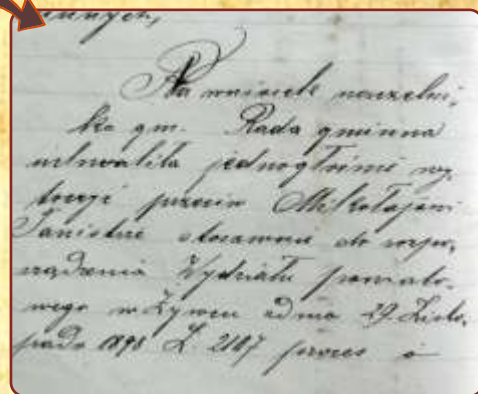 Na wniosek naczelni,
ka gm. Rada gminna
uchwaliła jednogłośnie wy
toczyć przeciw Mikołajowi
stosownie do rozpo,
rządzenia Wydziału powiato,
wego w Żywcu z dnia 29 Listo,
pada 1898 L. 2187 proces o